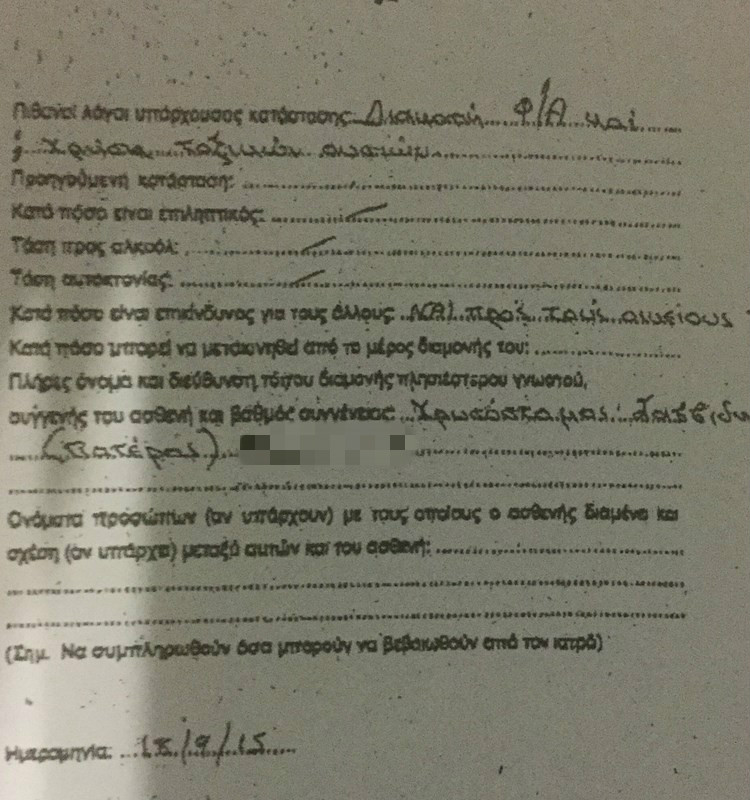 Πιθανοί λόγοι υπάρχουσας κατάστασης: Διακοπή Φ/Α και
χρήση τοξικών ουσιών
Προηγούμενη κατάσταση:
Κατά πόσο είναι επιληπτικός:
Τάση προς αλκοόλ:
Τάση αυτοκτονίας:
Κατά πόσο είναι επικίνδυνος για τους άλλους: ΝΑΙ προς τους οικείους
Κατά πόσο μπορεί να μετακινηθεί από το μέρος διαμονής του:
Πλήρες όνομα και διεύθυνση τόπου διαμονής πλησιέστερου γνωστού,
συγγενής του ασθενή και βαθμός συγγένειας:
(Πατέρας)
Ονόματα προσώπων (αν υπάρχουν) με τους οποίους ο ασθενής διαμένει και
σχέση (αν υπάρχει) μεταξύ αυτών και του ασθενή:
(Σημ. Να συμπληρωθούν όσα μπορούν να βεβαιωθούν από τον ιατρό)
Ημερομηνία: